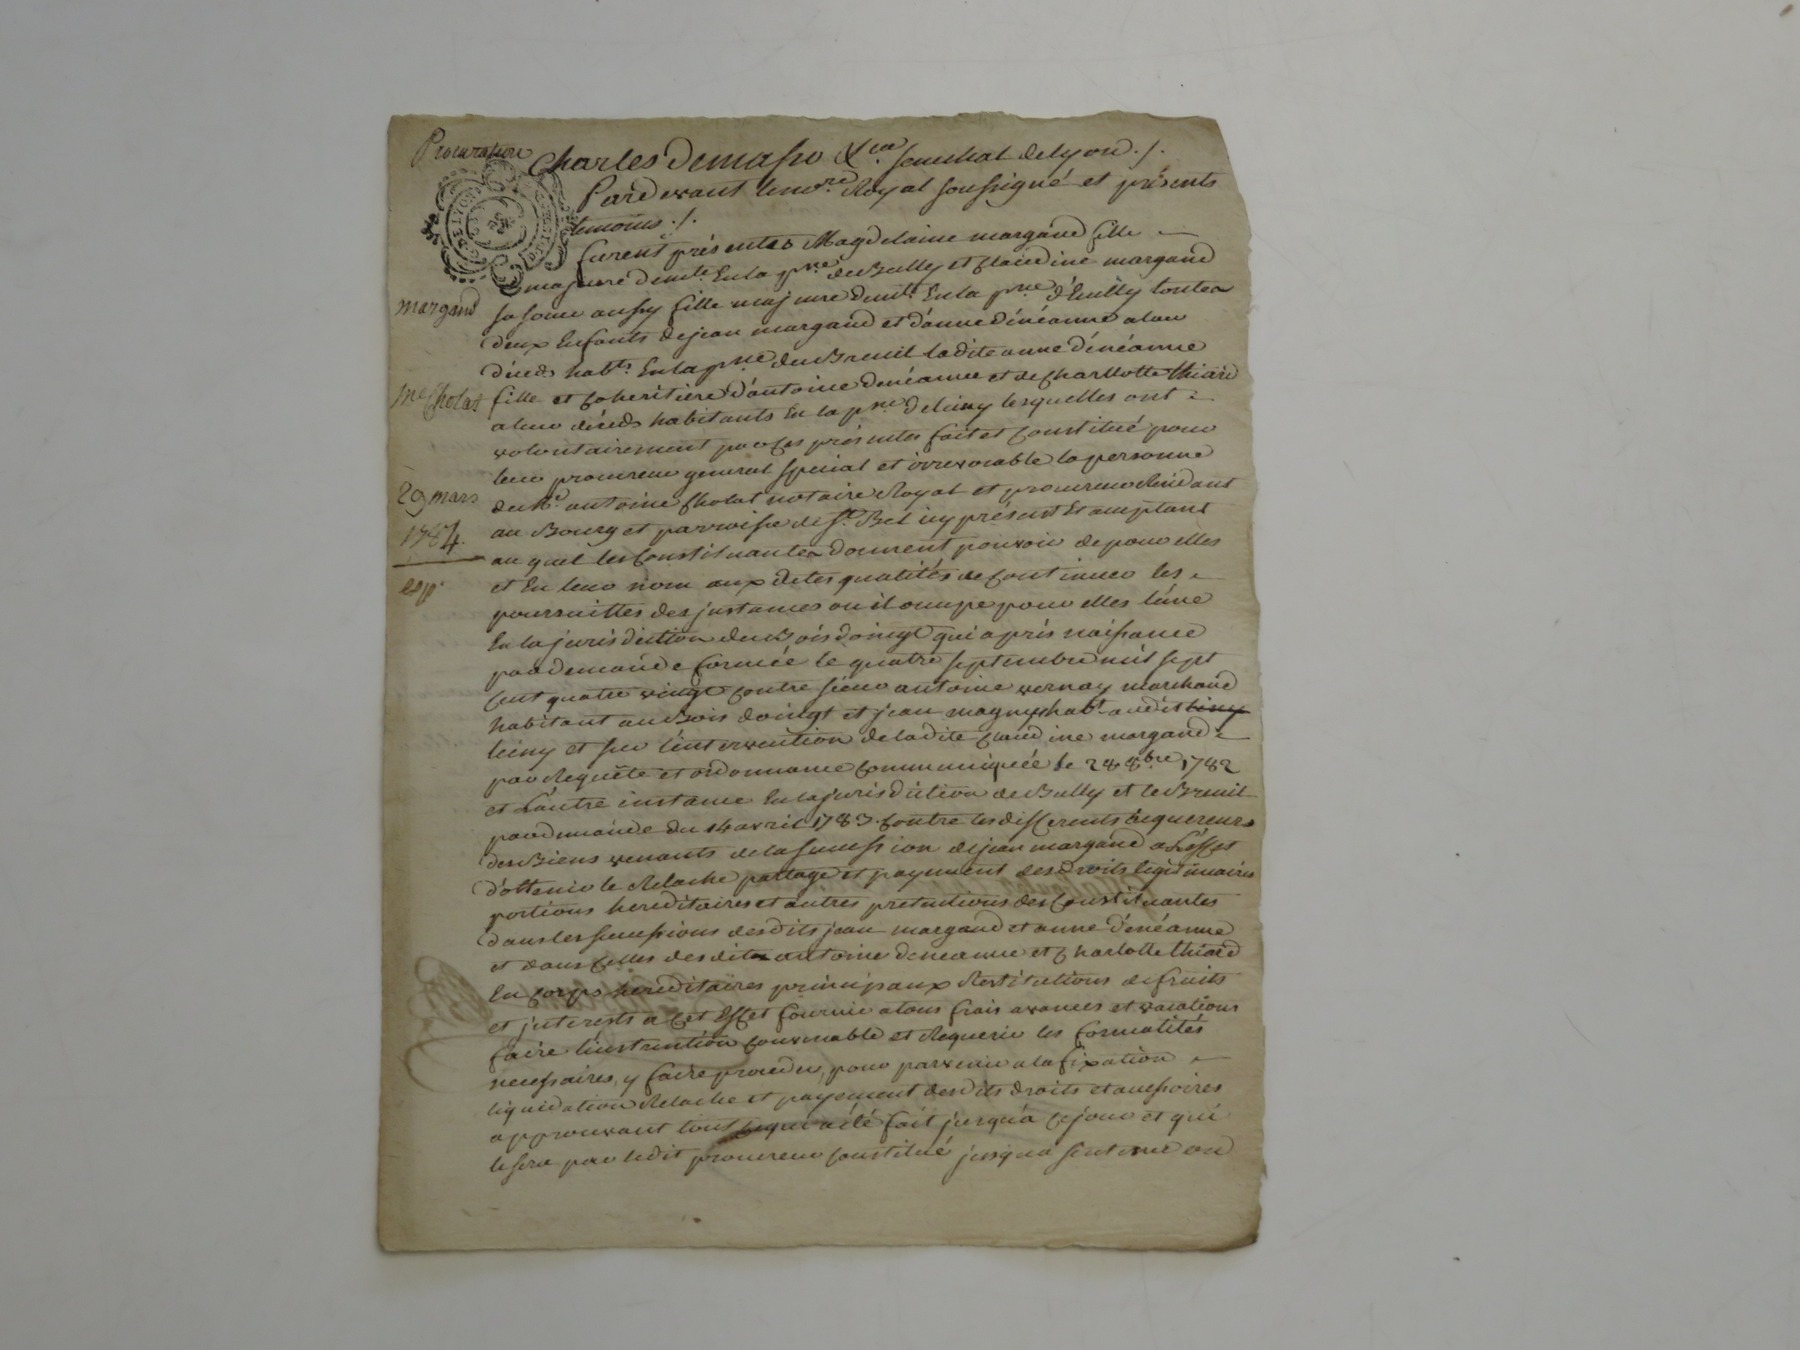 Procuration
Charles Demasso &ca. senechal de lyon ./.
Pardevant le no.re Royal soussigné et présents
temoins ./.
furent présentes Magdelaine margand fille
majeure demte. En la pne. de Bully et Claudine margand
margand
sa soeur aussy fille majeure demte. En la pne. d'Euilly toutes
deux Enfants de jean margand et d'anne dénéanne a leur
décéds habts. En la pne. du Breuil ladite anne dénéanne
me Cholat
fille et coheritiere d'antoine denéanne et de Charllotte thiard
a leur décéds habitants En la pne. de leiny lesquelles ont
volontairement par ces présentes fait et constitué pour
leur procureur general special et irrevocable la personne
29 mars
1784.
de Me. antoine Cholat notaire Royal et procureur Résidant
au Bourg et parroisse de St. Bel icy présent Et acceptant
au quel les constituantes donnent pouvoir de pour elles
exp.
et En leur nom aux dites qualités de continuer les
poursuittes des jnstances ou il occupe pour elles l'une
En la jurisdiction du Bois d'oingt qui a pris naissance
par demande formée le quatre septembre mil sept
cent quatre vingt contre sieur antoine vernay marchand
habitant au Bois doingt et jean magny habt. audit leiny
leiny et sur l'intervention de ladite Claudine margand
par Requête et ordonnance communiquée le 28 8bre 1782
et l'autre instance En la jurisdiction de Bully et le Breuil
par demande du 14 avril 1783. contre les differents acquereurs
des Biens venants de la succession de jean margand a L'effet
d'obtenir le Relache partage et payement des droits légitimaires
portions hereditaires et autres pretentions des constituantes
dans les successions desdits jean margand et anne dénéanne
et dans celles desdits antoine deneanne et Charlotte thiard
En corps hereditaires principaux Restitutions de fruits
et jnterests a cet Effet fournir a tous frais avances et vacations
faire l'instruction convenable et Requerir les formalités
necessaires, y faire proceder, pour parvenir a la fixation
liquidation Relache et payement desdits droits et accessoires
approuvant tout ce qui a été fait jusqu'a ce jour et qui
le sera par ledit procureur constitué jusqu'a sentence ou